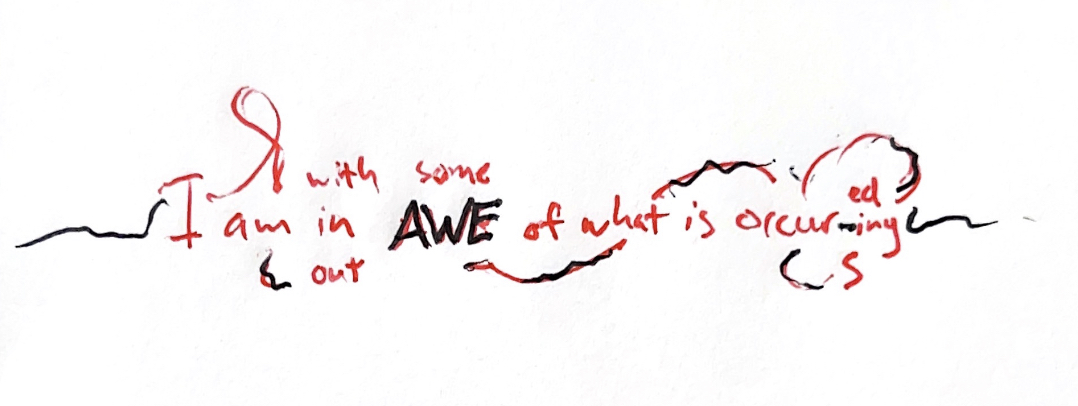 with some
I am in AWE of what is occurring
ed
out
s